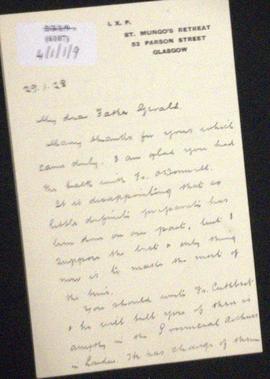 I. X. P.
ST. MUNGO'S RETREAT
52 PARSON STREET
GLASGOW
4/1/1/9
29.1.28
My dear Father Gerald.
Many thanks for yours which
came duly. I am glad you had
the talk with Fr. O'Donnell.
It is disappointing that so
little definite preparation has
been done on our part, but I
suppose the best & only thing
now is to make the most of
the time.
You should write Fr. Cuthbert
& he will tell you of there is
in the Provincial Archives
in London. He has charge of them